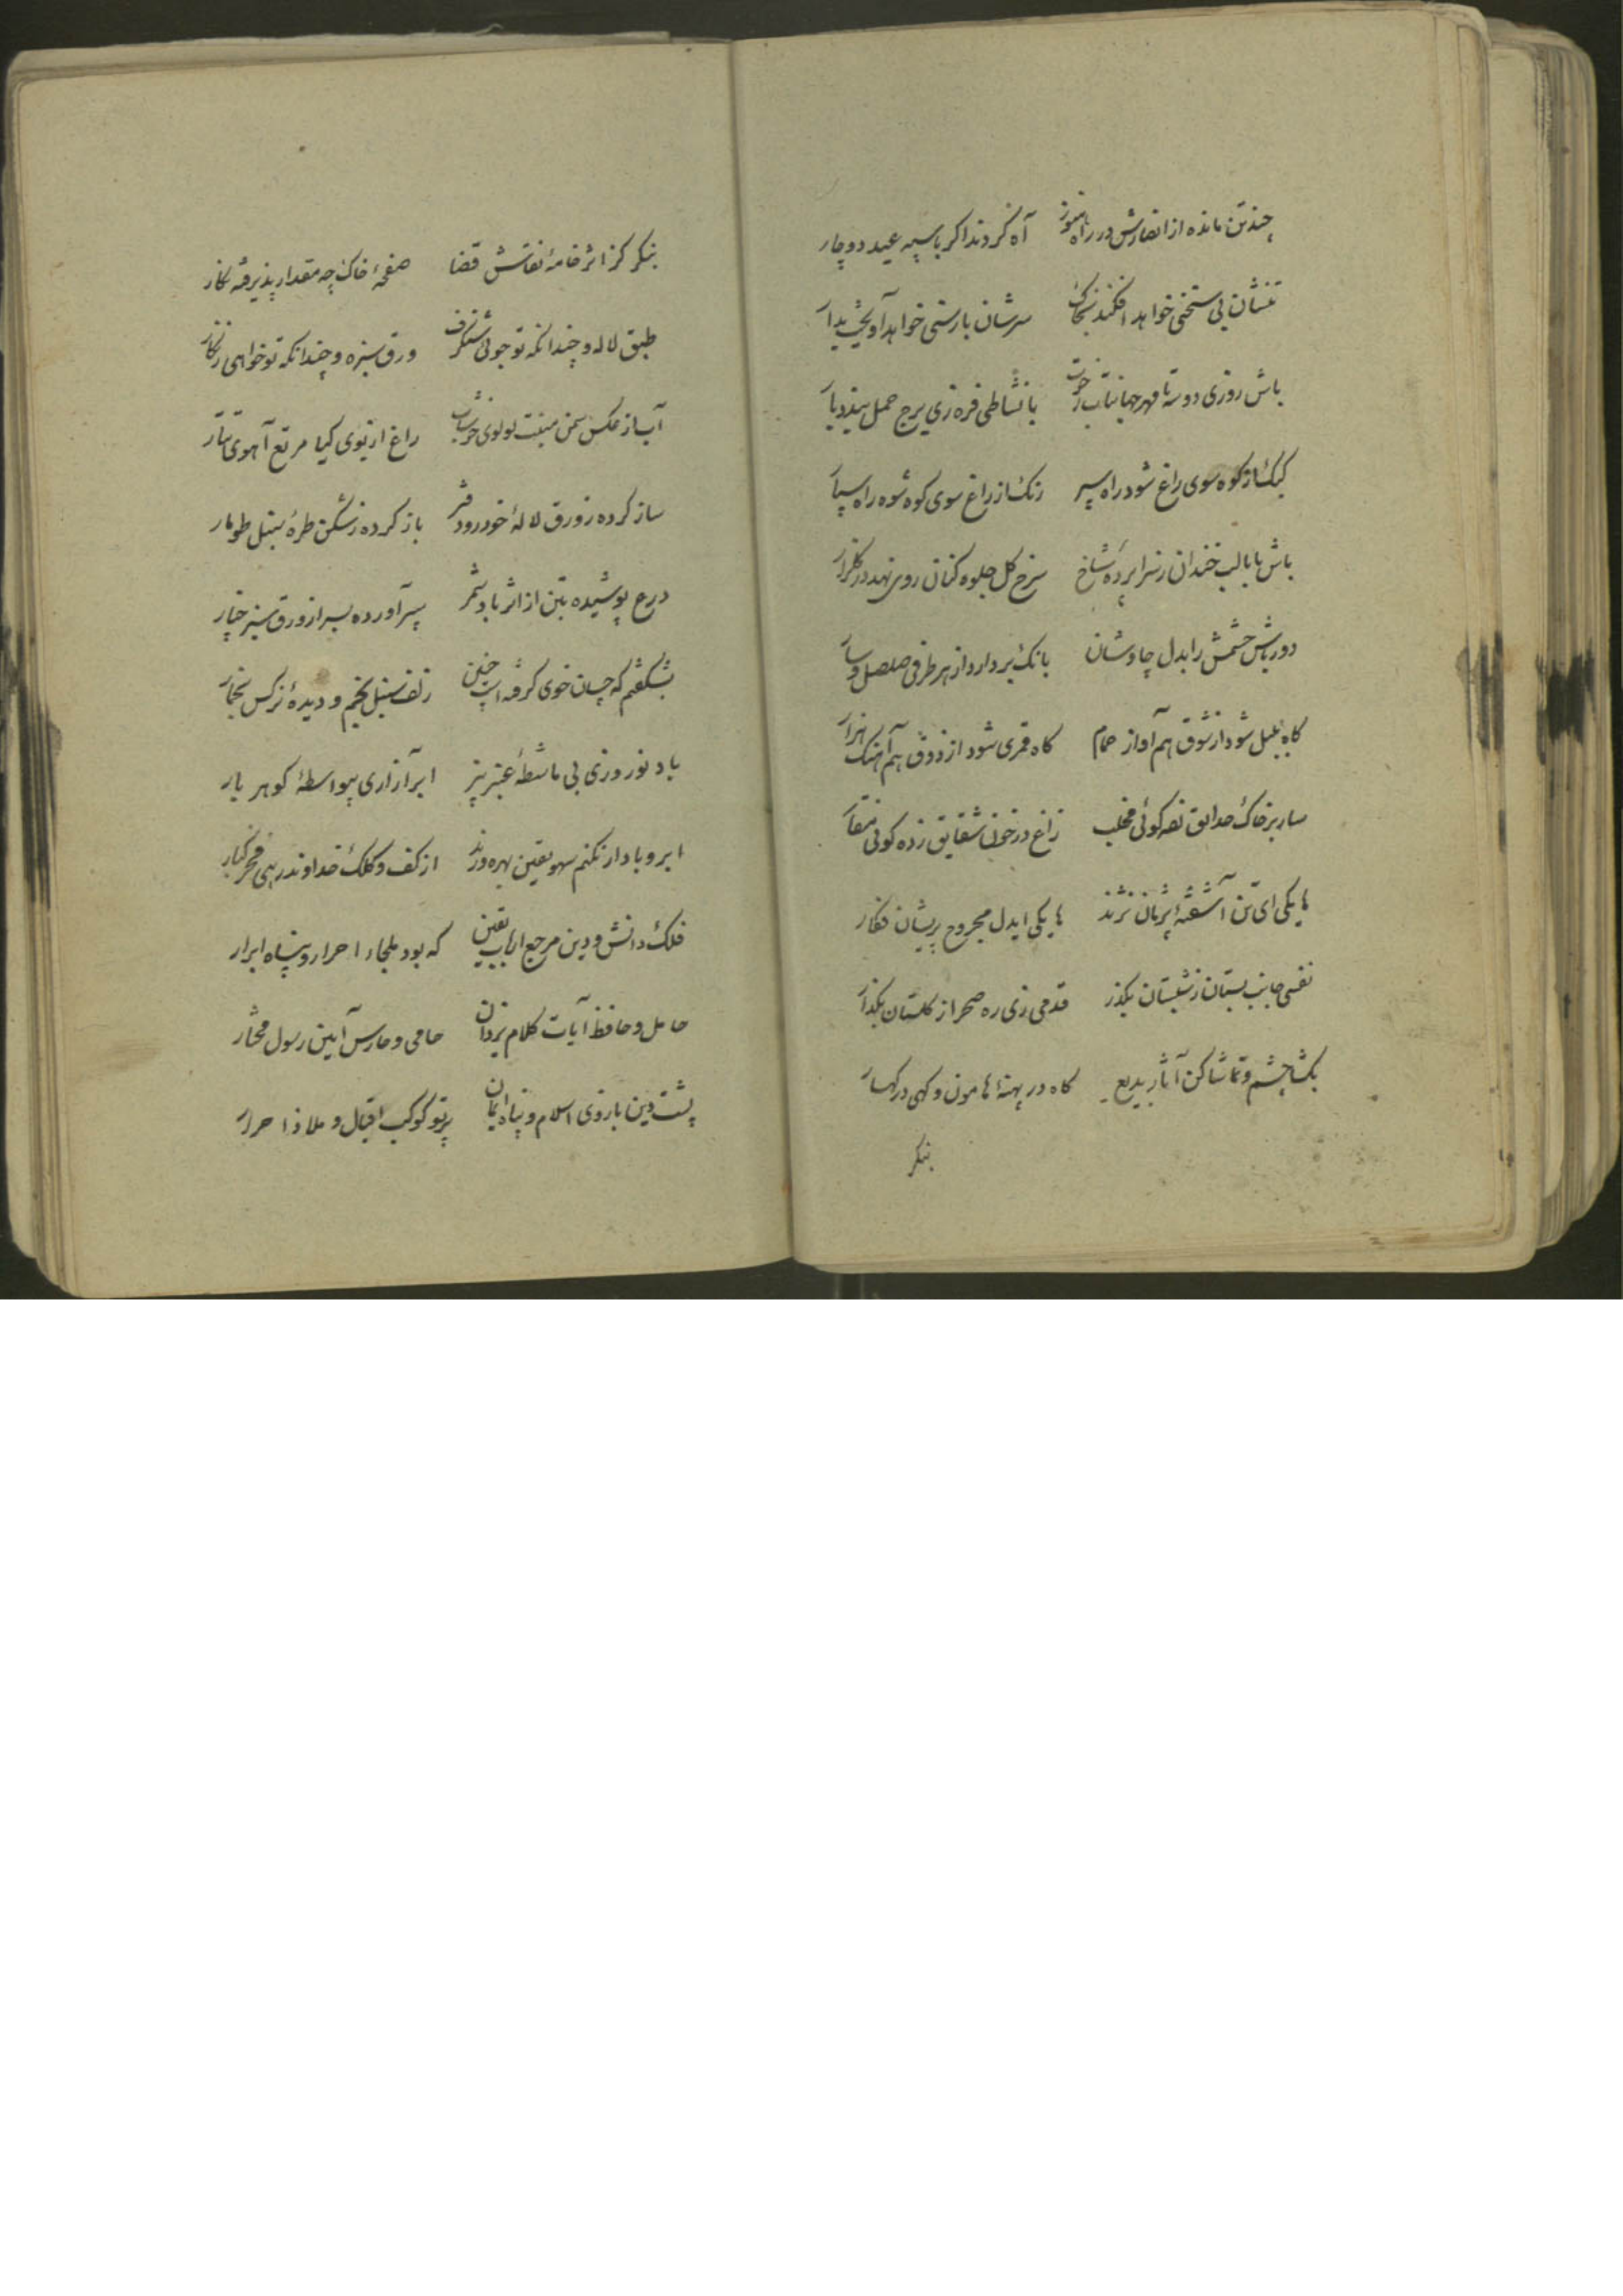 چند تن مانده از انصارش در راه هنوز آه گر دوند اگر باسپه عید دوچار
تنشان بی سختی خواهد افکند بخاک سرشان بارستی خواهد آویخت بدار
باش روزی دو سه تا مهر جهانتاب زحوت با نشاطی فره زی برج حمل بندد بار
کبک از کوه سوی راغ شود راه سپر رنک از راغ سوی کوه شود راه سپار
باش تا با لب خندان ز سراپرده شاخ سرخ گل جلوه کنان روی نهد در گلزار
دورباش حشمش را بدل چاوشان بانک بردارد از هر طرفی صلصل و سار
گاه بلبل شود از شوق هم آواز حمام گاه قمری شود از ذوق هم آهنک هزار
سار بر خاک حدایق زده گوئی مخلب زاغ در خون شقایق زده گوئی منقار
ها یکی ای تن آشفته پژمان نژند ها یکی ایدل مجروح پریشان فکار
نفسی جانب بستان ز شبستان بگذر قدمی زی ره صحرا ز گلستان بگذار
بگشا چشم و تماشا کن آثار بدیع گاه در پهنهٔ هامون و گهی در کهسار
بنگر
بنگر کز اثر خامهٔ نقاش قضا صفحهٔ خاک چه مقدار پذیرفته نگار
طبق لاله و چندانکه تو جوئی شنگرف ورق سبزه و چندانکه تو خواهی زنگار
آب از عکس سمن منبت لولوی خوشاب راغ از بوی گیا مرتع آهوی تتار
ساز کرده ز ورق لالهٔ خودرو دفتر باز کرده ز شکن طرهٔ سنبل طومار
درع پوشیده بتن از اثر باد شمر سپر آورده بسر از ورق سبز خیار
بشگفتم که چسان خوی گرفته است چنین زلف سنبل بخم و دیدهٔ نرگس بخمار
باد نوروزی بی ماشطهٔ عنبر بیز ابر آزاری بیواسطهٔ گوهر بار
ابر و باد ار نکنم سهو یقین بهره ورند از کف و کلک خداوند رهی فخر کبار
فلک دانش و دین مرجع ارباب یقین که بود ملجاء احرار و پناه ابرار
حامل و حافظ آیات کلام یزدان حامی و حارس آیین رسول مختار
پشت دین بازوی اسلام و پناه ایمان پرتو کوکب اقبال و ملاذ احرار